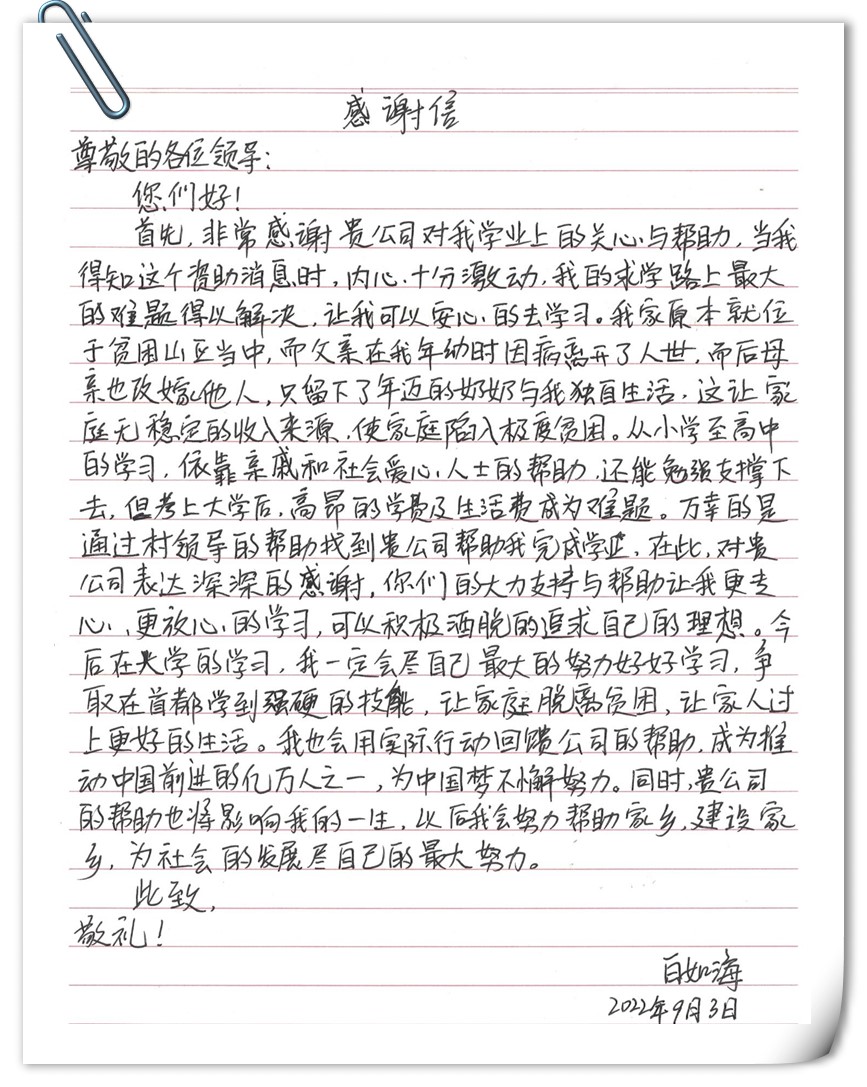 感谢信
尊敬的各位领导：
您们好！
首先，非常感谢贵公司对我学业上的关心与帮助，当我
得知这个资助消息时，内心十分激动，我的求学路上最大
的难题得以解决，让我可以安心的去学习。我家原本就位
于贫困山区当中，而父亲在我年幼时因病离开了人世，而后母
亲也改嫁他人，只留下了年迈的奶奶与我独自生活，这让家
庭无稳定的收入来源，使家庭陷入极度贫困。从小学至高中
的学习，依靠亲戚和社会爱心人士的帮助，还能勉强支撑下
去，但考上大学后，高昂的学费及生活费成为难题。万幸的是
通过村领导的帮助找到贵公司帮助我完成学业，在此，对贵
公司表达深深的感谢，你们的大力支持与帮助让我更专
心，更放心的学习，可以积极洒脱的追求自己的理想。今
后在大学的学习，我一定会尽自己最大的努力好好学习，争
取在首都学到强硬的技能，让家庭脱离贫困，让家人过
上更好的生活。我也会用实际行动回馈公司的帮助，成为推
动中国前进的亿万人之一，为中国梦不懈努力。同时，贵公司
的帮助也将影响我的一生，以后我会努力帮助家乡，建设家
乡，为社会的发展尽自己的最大努力。
此致，
敬礼！
白如海
2022年9月3日